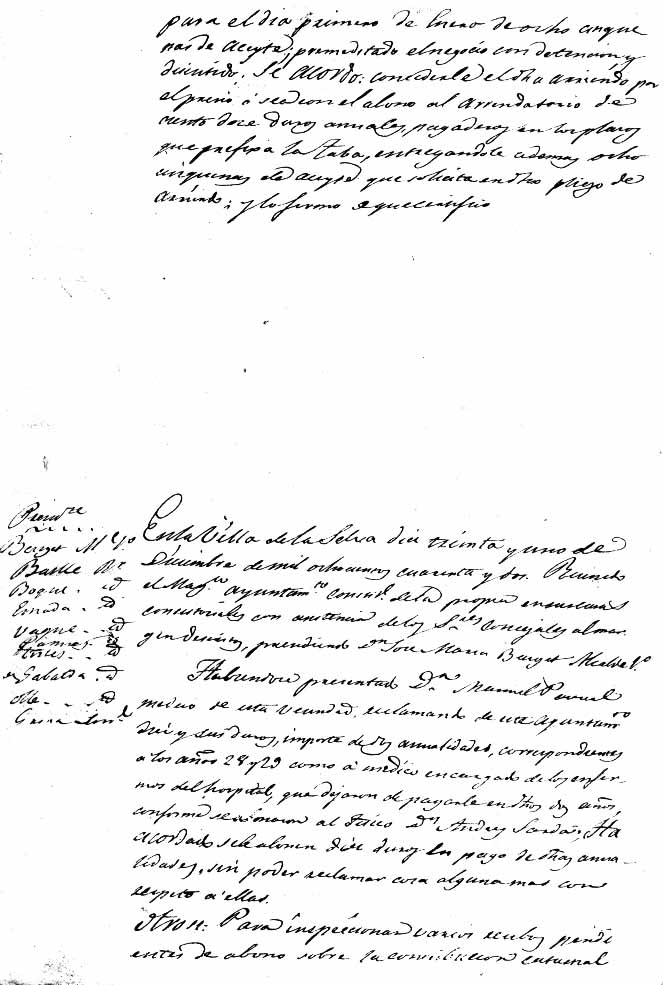 para el dia primero de Enero de ocho cinque
nas de Aceyte; premeditado el negocio con detencion y
discutido. Se Acordo: concederle el dho arriendo por
el precio ó sea con el abono al Arrendatario de
ciento doze duros annuales, pagaderos en los plazos
que prefixa la Taba, entregandole ademas ocho
cinquenas de aceyte que solicita en dho pliego de
Arriendo; y lo firmo de que certifico
En la Villa de la Selva dia treinta y uno de
Diciembre de mil ochocientos cuarenta y dos. Reunido
el Magco ayuntamto constl de la propia en sus casas
consistoriales con asistencia de los Sres Concejales al mar
gen descritos, presidiendo Dn Jose Maria Burget Alcalde 1o
Presidte
Burget Al 1o
Batlle Rr
Boqué id
id
Vaqué id
id
id
Gabalda id
Olle id
Habiendose presentado Dn Manuel Pascual
medico de esta vecindad, reclamando de este Ayuntamto
diez y seis duros, importe de dos annualidades, correspondientes
a los años 28 y 29 como á medico encargado de los enfer-
mos del hospital, que dejaron de pagarle en dhos dos años,
conforme se al fisico Dn Andres Sardá; Ha
acordado se le abonen diez duros en pago de dhas annua-
lidades, sin poder reclamar cosa alguna mas con
respeto a ellas.
Otro si: Para inspeccionar varios recibos pendi
entes de abono sobre la contribucion